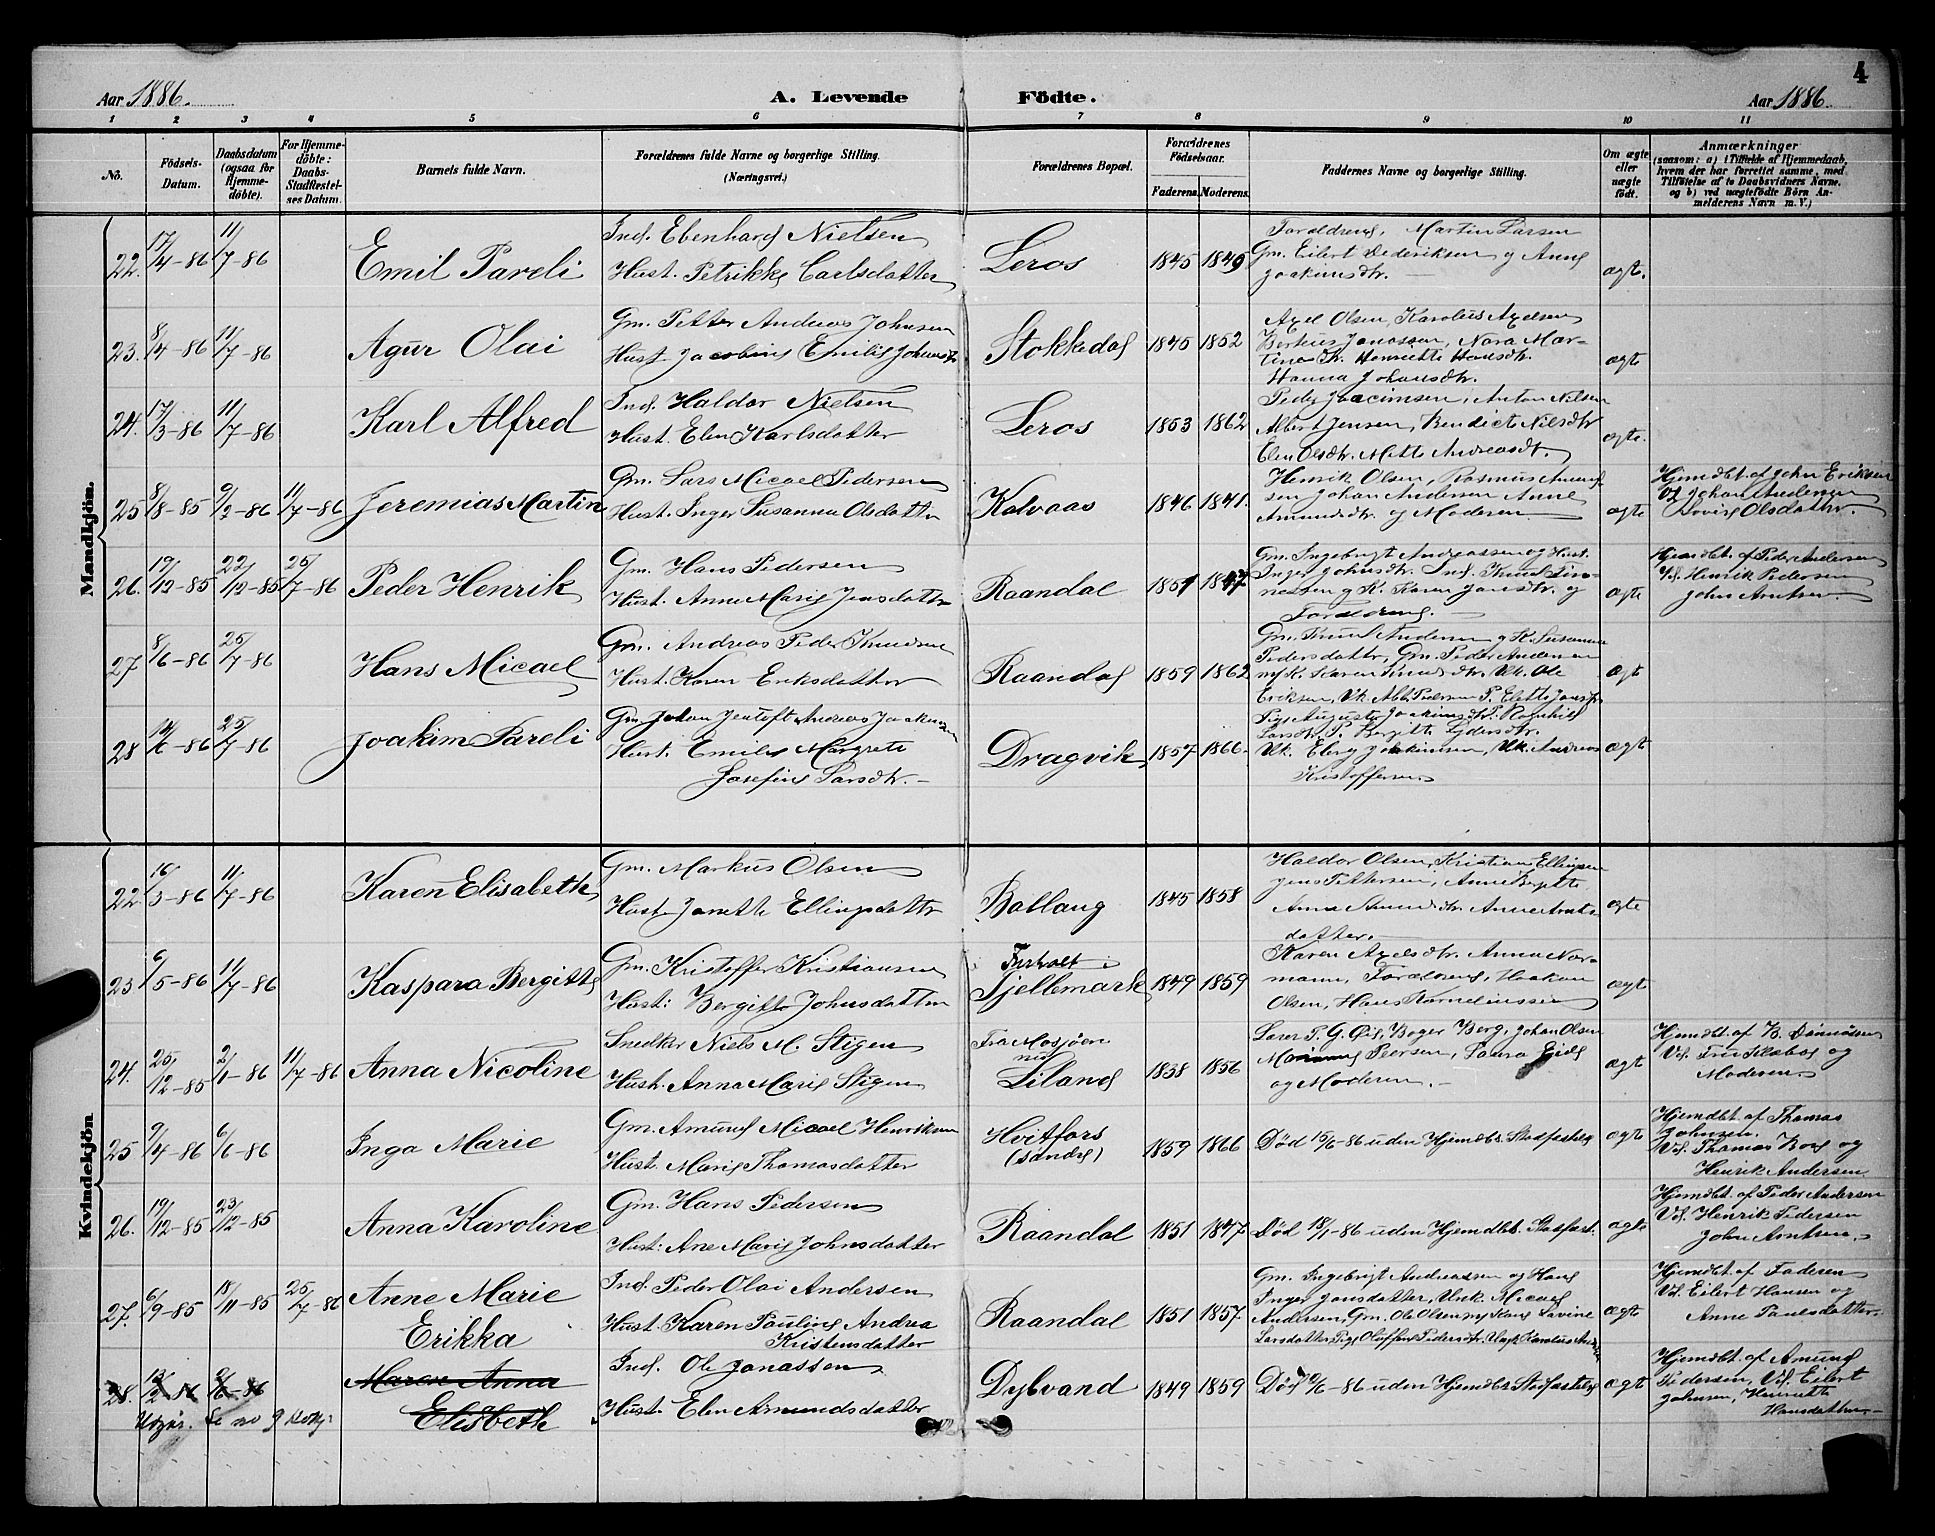 4
Aar 1886. A. Levende Födte. Aar 1886.
1 2 3 4 5 6 7 8 9 10 11
No. Födsels-Datum. Daabsdatum (ogsaa for Hjemme-döbte). For Hjemme-döbte: Daabs-Stadfæstel-ses Datum. Barnets fulde Navn. Forældrenes fulde Navne og borgerlige Stilling. (Næringsvei.) Forældrenes Bopæl. Forældrenes Födselsaar. Faderens. Moderens. Faddernes Navne og borgerlige Stilling. Om ægte eller uægte födt. Anmærkninger (saasom: a) i Tilfælde af Hjemmedaab, hvem der har forrettet samme, med Tilföielse af to Daabsvidners Navne, og b) ved uægtefödte Börn An-melderens Navn m. V.)
Mandkjön.
22. 17/4-86 11/7-86 Emil Pareli
Ind. Ebenhard Nielsen
Hust. Petrikke Carlsdatter
Leros 1845 1849
Forældrene, Martin Larsen
Gm. Eilert Dideriksen og Anne
Joakimsdtr.
ægte.
23. 8/4-86 11/7-86 Agur Olai
Gm. Petter Andreas Johnsen
Hust. Jacobine Emilie Johnsdtr
Stokkedal 1845 1852
Axel Olsen, Karolus Axelsen
Berteus Jonassen, Nora Mar-
tinesdtr. Henriette Hansdtr.
Hanna Johansdtr.
ægte
24. 17/3-86 11/7-86 Karl Alfred
Ind. Haldor Nielsen
Hust. Elen Karlsdatter
Leros 1853 1862
Peder Joacimsen, Anton Nilsen
Albert Jensen, Bendicte Nilsdtr
Elen Olsdtr. Mette Andreasdtr.
ægte.
25 8/8-85 9/2-86 11/7-86 Jeremias Martin
Gm. Lars Micael Pedersen
Hust. Inger Susanna Olsdatter
Kalvaas 1846 1841.
Henrik Olsen, Rasmus Amund-
sen Johan Andersen Anne
Amundsdtr. og Moderen
ægte
Hjemdbt. af John Eriksen
Vd. Johan Andersen
Lovise Olsdatter.
26. 19/12-85 22/12-85 25/7-86 Peder Henrik
Gm. Hans Pedersen
Hust. Anne Marie Jensdatter
Raandal 1851 1847
Gm. Ingebrigt Andreassen og Hust.
Inger Johnsdtr. Ind. Knud Tin-
nessen og K. Karen Jonsdtr. og
Forældrene.
ægte
Hjemdbt. af Peder Andersen
Vd. Henrik Pedersen
John Arntsen.
27 8/6-86 25/7-86 Hans Micael
Gm. Andreas Peder Knudsen
Hust. Karen Eriksdatter
Raandal 1859 1862
Gm. Knud Andersen og K. Susanna
Pedersdatter, Gm. Peder Andersen
og K. Karen Knudsdtr. Uk. Ole
Eriksen, Uk. Pedersen P. Elette
ægte
28 /6-86 25/7-86 Joakim Pareli
Gm. Johan Jentoft Andreas Joakimsen
Hust. Emilie Margrete
Josefine Larsdtr.
Dragvik 1857 1866.
Pige Auguste Joakimsdtr. P. Ragnhild
Larsdtr. P. Bergitte Pedersdtr.
Uk. Eberg Joakimsen, Uk. Andreas
Kristoffersen
ægte
Kvindekjön
22 16/3-86 11/7-86 Karen Elisabeth
Gm. Markus Olsen
Hust. Janette Ellingsdatter
Ballang 1845 1858
Haldor Olsen, Kristian Ellingsen
Jens Pettersen, Anne Bergitte
Anna dtr. Anne Arnts-
datter.
ægte
23 6/5-86 11/7-86 Kaspara Bergitte
Gm. Kristoffer Kristiansen
Hust: Bergitte Johnsdatter
Fjellmark 1849 1859
Karen Axelsdtr. Anna Nor-
mann, Forældrene, Haakon
Olsen, Hans Korneliussen
ægte
24. 25/12-85 2/1-86 11/7-86 Anna Nicoline
Snedker Niels M. Stigen
Hust. Anna Marie Stigen
Fra Mosjøen
ved
Liland 1838 1856
Lærer P. G. Eid, Boger Berg, Johan Olsen
Peersen, Laura Eide
og Moderen.
ægte
Hjemdbt. af B. Dønnessen
Vd. Skabos og
Moderen.
25 9/4-86 6/6-86 Inga Marie
Gm. Amund Micael Henriksen
Hust. Marie Thomasdatter
Hvitfors
(Sande) 1859 1866
Død 15/6-86 uden Hjemdbs Stadfæstelse
ægte
Hjemdbt. af Thomas
Johnsen.
Vd. Thomas Borg og
Henrik Andersen
26. 19/12-85 23/12-85 Anna Karoline
Gm. Hans Pedersen
Hust: Ane Marie Johnsdatter
Raandal 1851 1847
Død 18/1-86 uden Hjemdbt. Stadfæst.
ægte
Hjemdbt. af Peder Andersen
Vd. Henrik Pedersen
John Arntsen.
27. 6/9-85 18/11-85 25/7-86 Anne Marie
Erikka
Ind. Peder Olai Andersen
Hust. Karen Pauline Andrea
Kristensdatter
Raandal 1851 1857
Gm. Ingebrigt Andreassen og Hans
Inger Jonsdatter, Unk. Micael
Andersen, Gm. Ole Olsen og Kone Lovine
Larsdatter Pige Oluffine Pedersdtr. Ungk Karolus
ægte
Hjemdbt. af Faderen
Vd. Eilert Hansen og
Anne Paulsdatter
28. Maren Anna
Elisbeth
Ind. Ole Jonassen
Hust. Elen Amundsdatter
Dybvand 1849 1859
Død /6-86 uden Hjemdbs Stadfæstelse
ægte
Hjemdbt. af Amund
Pedersen, Vd. Eilert
Johnsen, Henriette
Hansdatter
Utgår. Se no 9